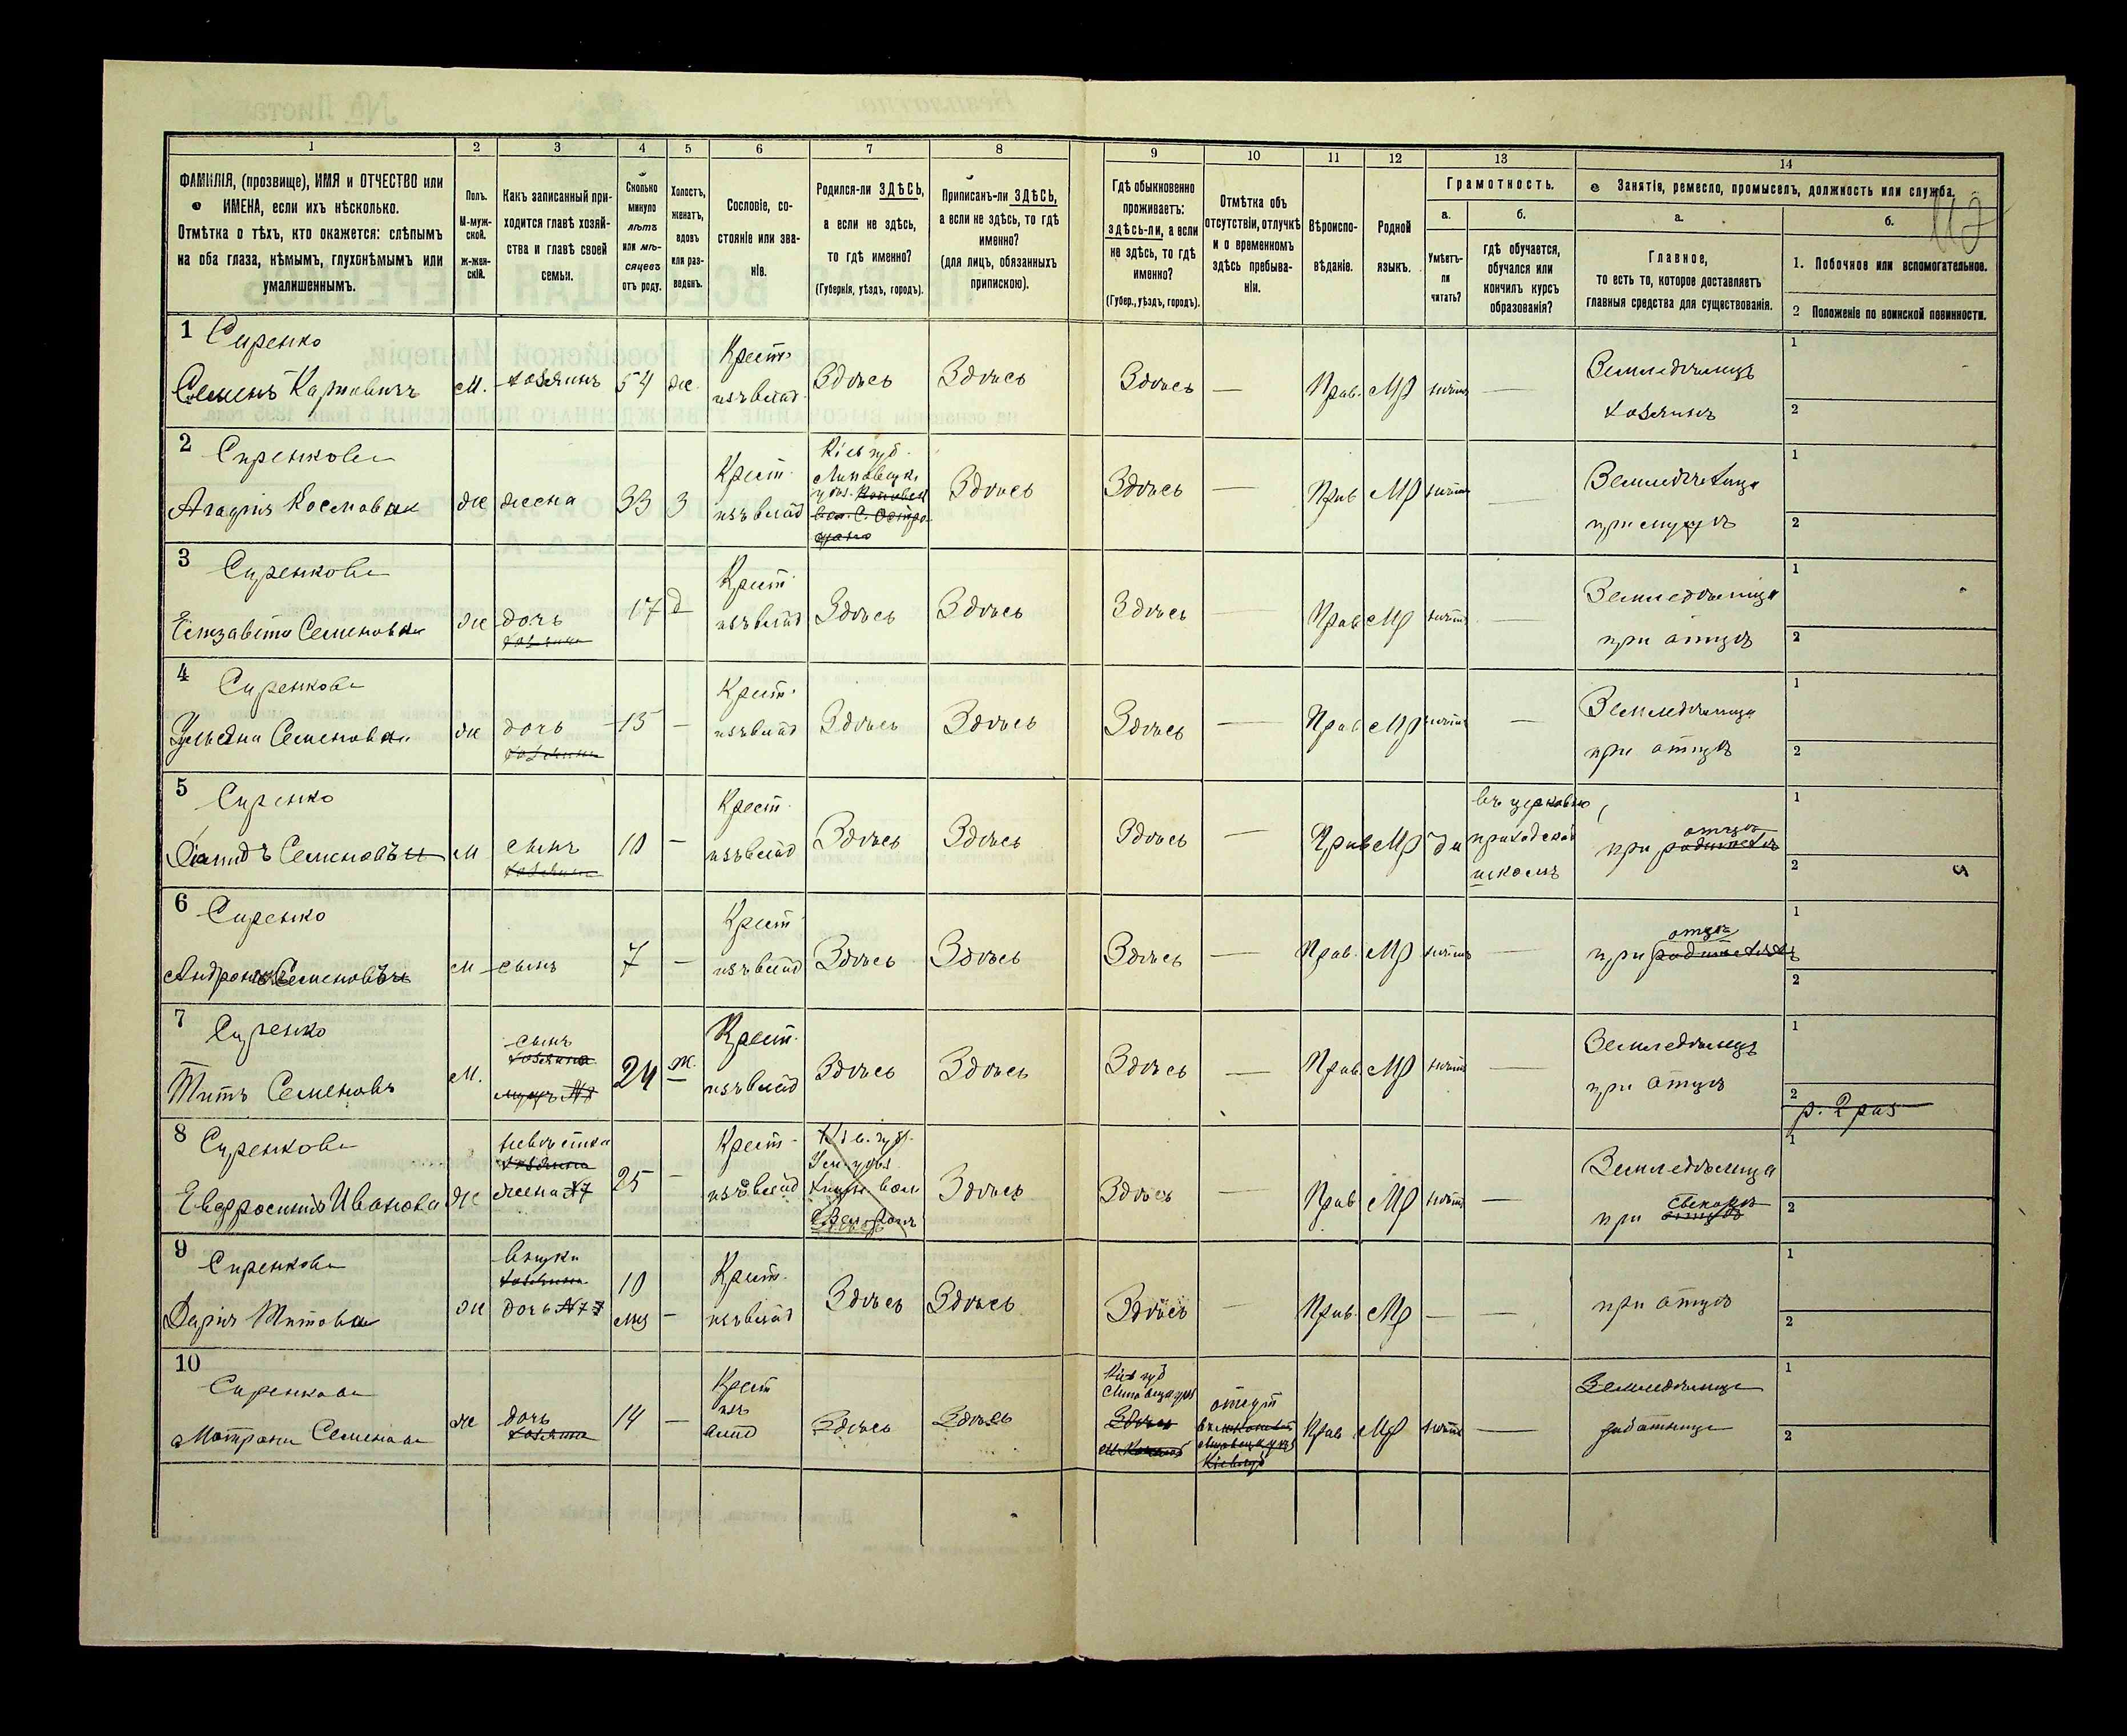 1 2 3 4 5 6 7 8 9 10 11 12 13 14
ФАМИЛІЯ, (прозвище), ИМЯ и ОТЧЕСТВО или
ИМЕНА, если ихъ нѣсколько.
Отмѣтка о тѣхъ, кто окажется: слѣпымъ
на оба глаза, нѣмымъ, глухонѣмымъ или
умалишеннымъ.
Полъ.
М-муж-
ской.
ж-жен-
скій.
Какъ записанный при-
ходится главѣ хозяй-
ства и главѣ своей
семьи.
Сколько
минуло
лѣтъ
или мѣ-
сяцевъ
отъ роду.
Холостъ,
женатъ,
вдовъ
или раз-
веденъ.
Сословіе, со-
стояніе или зва-
ніе.
Родился-ли ЗДѢСЬ,
а если не здѣсь,
то гдѣ именно?
(Губернія, уѣздъ, городъ).
Приписанъ-ли ЗДѢСЬ,
а если не здѣсь, то гдѣ
именно?
(для лицъ, обязанныхъ
припискою).
Гдѣ обыкновенно
проживаетъ:
здѣсь-ли, а если
не здѣсь, то гдѣ
именно?
(Губер., уѣздъ, городъ).
Отмѣтка объ
отсутствіи, отлучкѣ
и о временномъ
здѣсь пребыва-
ніи.
Вѣроиспо-
вѣданіе.
Родной
языкъ.
Грамотность.
а.
Умѣетъ-
ли
читать?
б.
гдѣ обучается,
обучался или
кончилъ курсъ
образованія?
Занятія, ремесло, промыселъ, должность или служба.
а.
Главное,
то есть то, которое доставляетъ
главныя средства для существованія.
б.
1. Побочное или вспомогательное.
2 Положеніе по воинской повинности.
1 Сиренко
Семенъ Карповичъ м. хозяинъ 54 ж.
Крест.
изъ влад.
Здѣсь Здѣсь Здѣсь — Прав. МР нѣтъ —
Земледѣлецъ
хозяинъ
1
2
2 Сиренкова
Агафія Космовна ж жена 33 З
Крест.
изъ влад
Кіев губ.
Липовецк.
уѣз.
Здѣсь Здѣсь — Прав МР нѣтъ —
Земледѣлица
при мужѣ
1
2
3 Сиренкова
Елизавета Семеновна ж дочь
хозяина
17 д
Крест
изъ влад
Здѣсь Здѣсь Здѣсь — Прав МР нѣтъ —
Земледѣлица
при отцѣ
1
2
4 Сиренкова
Ульяна Семеновна ж дочь
хозяина
15 —
Крест.
изъ влад
Здѣсь Здѣсь Здѣсь — Прав МР нѣтъ —
Земледѣлица
при отцѣ
1
2
5 Сиренко
Семеновъ м сынъ
хозяина
10 —
Крест.
изъ влад
Здѣсь Здѣсь Здѣсь — Прав МР да
въ церковно
приходской
школѣ
отцѣ
при родителѣ
1
2
6 Сиренко
Семеновъ м сынъ 7 —
Крест
изъ влад
Здѣсь Здѣсь Здѣсь — Прав. МР нѣтъ —
отцѣ
при родителяхъ
1
2
7 Сиренко
Титъ Семеновъ м.
сынъ
хозяина
мужъ
24 ж.
Крест.
изъ влад
Здѣсь Здѣсь Здѣсь — Прав. МР нѣтъ
Земледѣлецъ
при отцѣ
1
2
8 Сиренкова
Евфросинія Иванова ж
невѣстка
хозяина
жена №7
25 —
Крест.
изъ влад
Здѣсь Здѣсь — Прав МР нѣтъ —
Земледѣлица
при свекорѣ
1
2
9 Сиренкова
Дарія Титова ж
внучка
хозяина
дочь №7
10
мц —
Крест.
изъ влад
Здѣсь Здѣсь Здѣсь — Прав. МР — —
при отцѣ
1
2
10 Сиренкова
Матрона Семенова ж
дочь
хозяина
14 —
Крест
изъ
влад
Здѣсь Здѣсь
Кіев губ
Липовецк уѣз
Здѣсь
отсут
Кіев губ
Прав МР нѣтъ —
Земледѣлица
работница
1
2